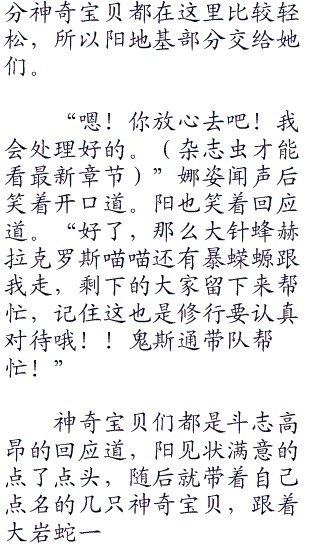 分神奇宝贝都在这里比较轻
松，所以阳地基部分交给她
们。
“嗯！你放心去吧！我
会处理好的。（杂志虫才能
看最新章节）”娜姿闻声后
笑着开口道。阳也笑着回应
道。“好了，那么大针蜂赫
拉克罗斯喵喵还有暴蝾螈跟
我走，剩下的大家留下来帮
忙，记住这也是修行要认真
对待哦！！鬼斯通带队帮
忙！”
神奇宝贝们都是斗志高
昂的回应道，阳见状满意的
点了点头，随后就带着自己
点名的几只神奇宝贝，跟着
大岩蛇一